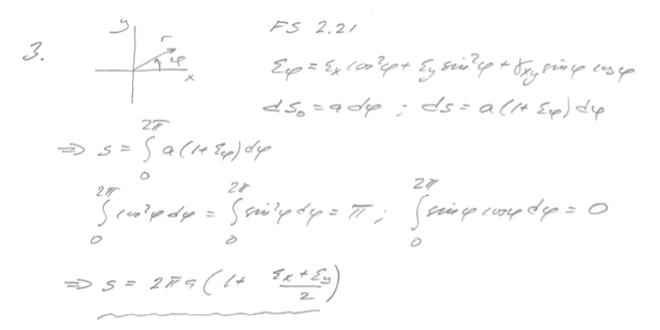 3.
y r φ x
FS 2.21
εφ = εx cos²φ + εy sin²φ + γxy sinφ cosφ
ds₀ = a dφ ; ds = a(1+εφ)dφ
⇒ s = ∫₀^2π a(1+εφ)dφ
∫₀^2π cos²φ dφ = ∫₀^2π sin²φ dφ = π ; ∫₀^2π sinφ cosφ dφ = 0
⇒ s = 2πa(1 + (εx+εy)/2)